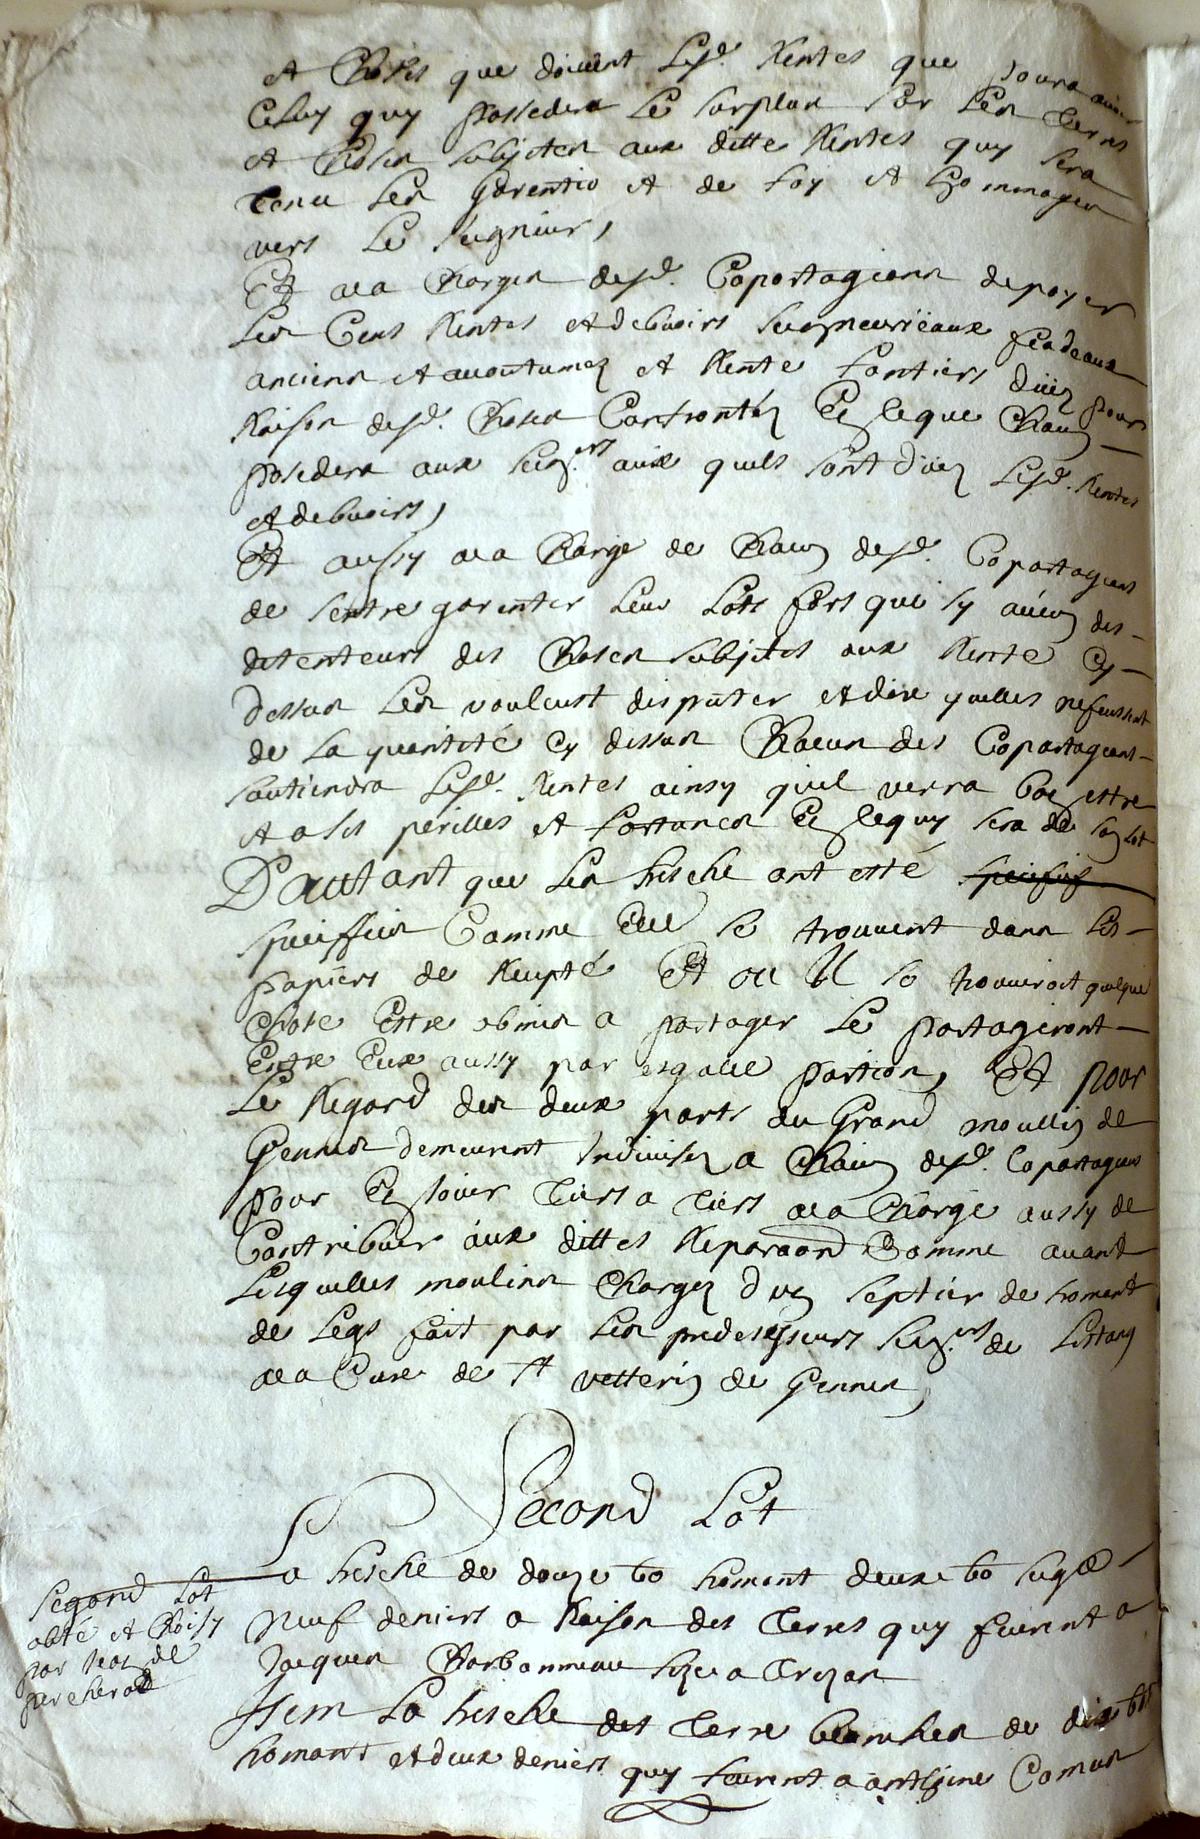 et Choses que doivent lesd. Rentes que poura avoir
Celuy quy possedera le surplus sur les Terres
et Choses subjetes aux ditte Rentes quy sera
tenu les garentir et de foy et hommages
vers le seigneur,
Et a la Charges desd. Copartageans de payer
les Cens Rentes et debvoirs seigneuriaux feodeaux
anciens et acoutumez et Rente fontiers düez pour
Raison desd. Choses Confrontéz En ce que Chacun
posedera aux seig.rs aux quels sont düez lesd. Rentes
et debvoirs,
Et aussy a la Charge de Chacun desd. Copartageans
de sentre garenter leur Lots fors que sy aucun des
detenteurs des Choses subjetes aux Rente Cy
dessus les voulust disputer et dire quelles ne fussent
de la quantité Cy dessus Chacun des Copartageans
soutiendra lesd. Rentes ainsy quil verra bon estre
et a ses perilles et fortunes En ce quy sera de son lot
D'autant que les freche ont esté
speciffiée Comme Elle se trouvent dans les
papiers de Recepte Et ou Il se trouveroit quelque
Chose Estre obmis a partager le partageront
Entre Eux aussy par esgalle portion, Et pour
le Regard des deux parts du Grand moullin de
Gennes demeurent Indivisez a Chacun desd. Copartageans
pour En jouir Tiers a Tiers a la Charge aussy de
Contribuer aux dittes Reparaon Comme avant
lesquelles moulins Chargez d'un septier de froment
de legs fait par les predesesseurs seig.rs de Lestang
a la Cure de St vetterin de Gennes,
Second Lot
La fresche de douze bo froment deux bo seigle
Neuf deniers a Raison des Terres quy furent a
Jacques Charbonneau size a Trezan
Item La fresche des Terre blanches de dix bo
fromant et deux deniers quy furent a anthoine Comus
Segond Lot
obté et Choisy
par